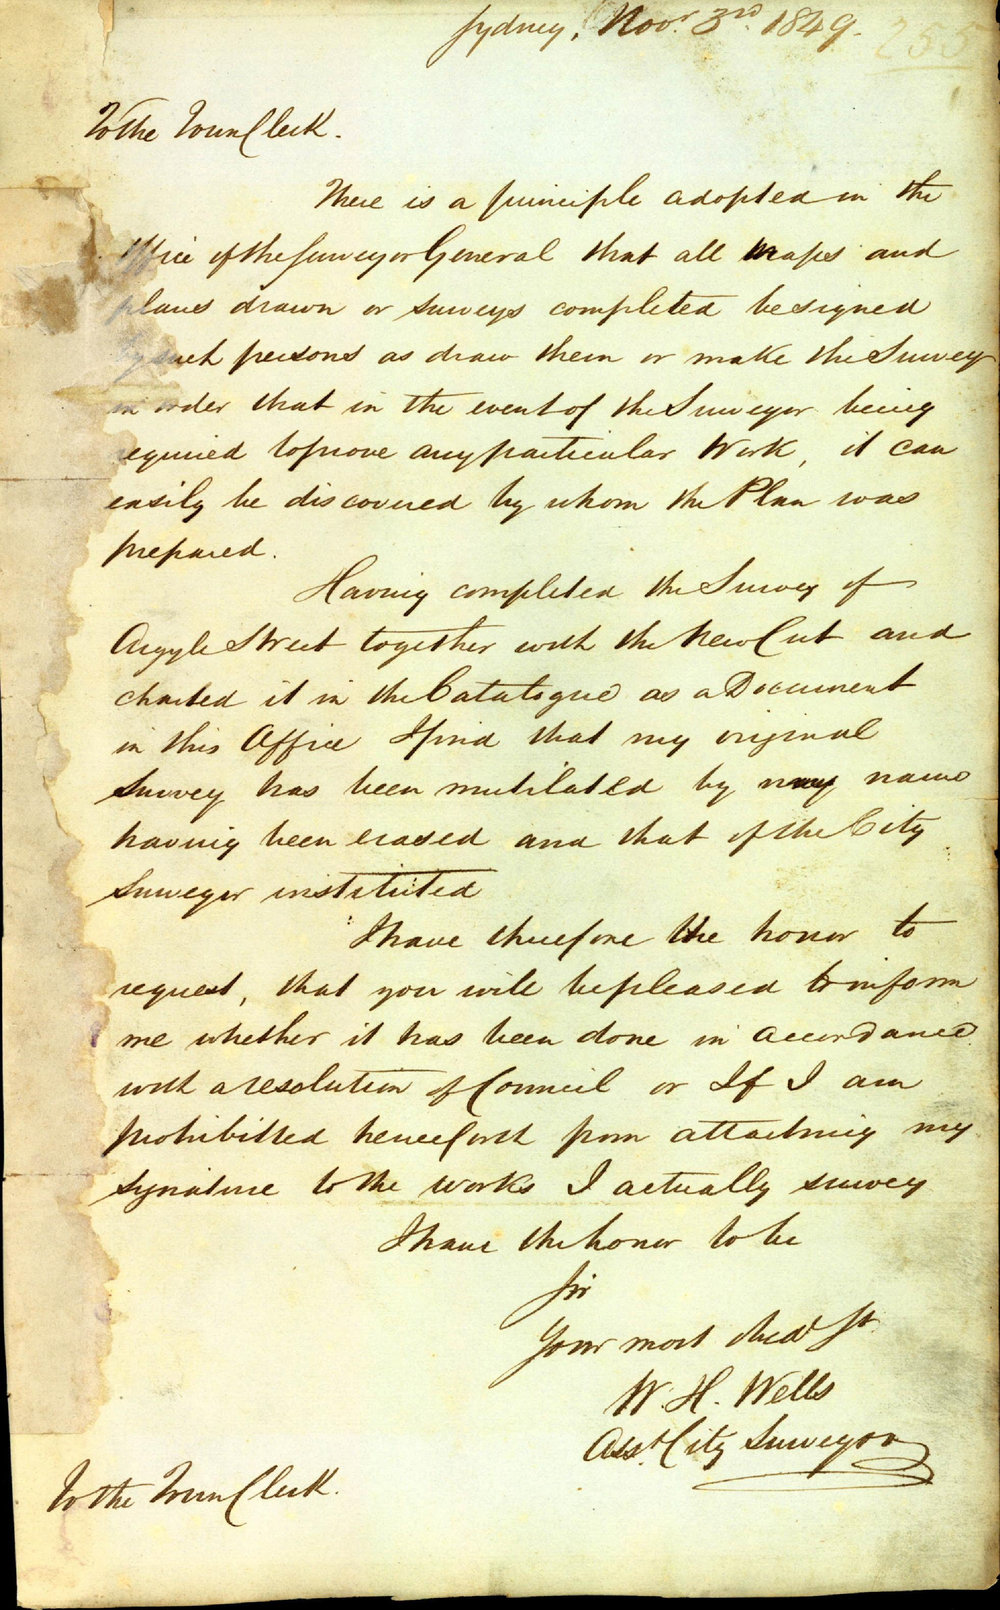 Sydney, Novr 3rd 1849.
255
To the Town Clerk.
There is a principle adopted in the
Office of the Surveyor General that all maps and
plans drawn or surveys completed be signed
by such persons as draw them or make the Survey
in order that in the event of the Surveyor being
required to prove any particular Work, it can
easily be discovered by whom the Plan was
prepared.
Having completed the Survey of
Argyle Street together with the New Cut and
charted it in the Catalogue as a Document
in this Office I find that my original
Survey has been mutilated by my name
having been erased and that of the City
Surveyor instituted
I have therefore the honor to
request, that you will be pleased to inform
me whether it has been done in accordance
with a resolution of Council or If I am
prohibitted henceforth from attaching my
signature to the works I actually survey
I have the honor to be
Sir
Your most obedt St
W. H. Wells
Asst. City Surveyor
To the Town Clerk.